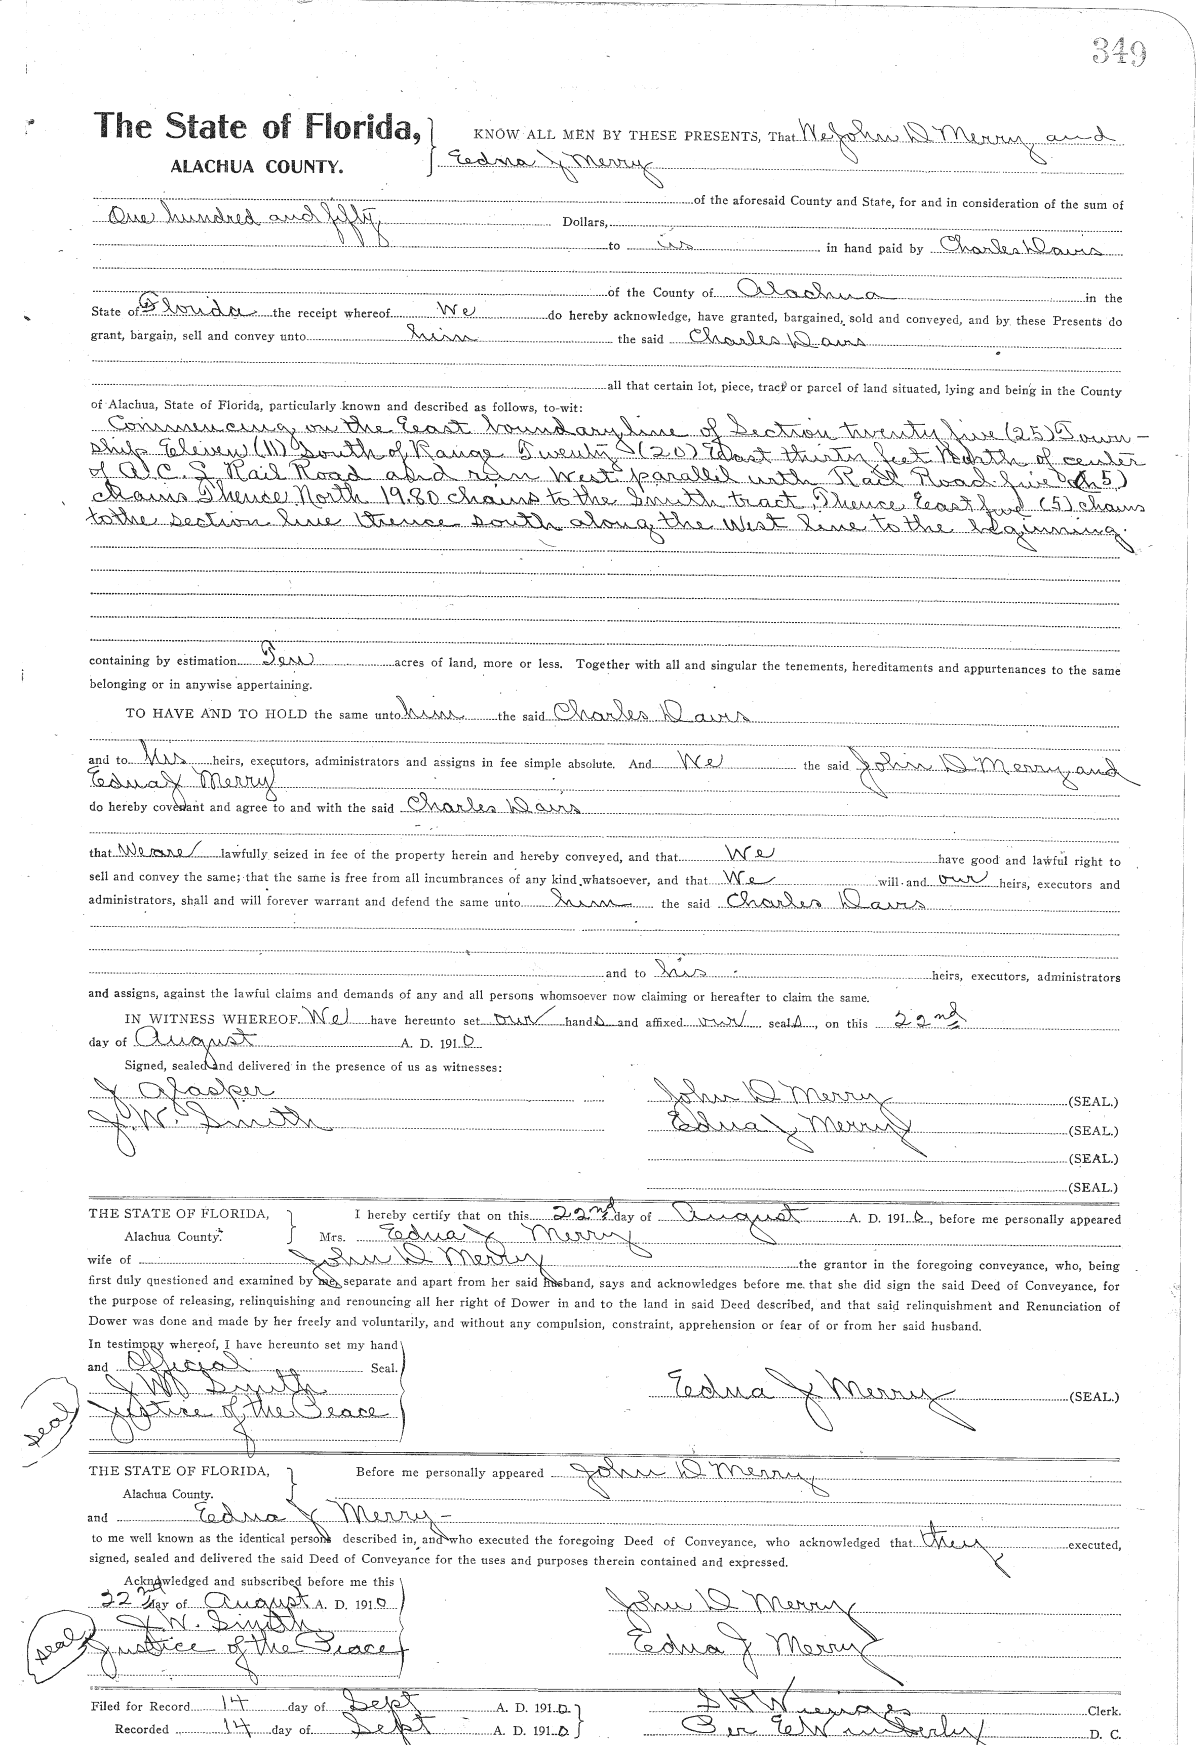 349
The State of Florida, KNOW ALL MEN BY THESE PRESENTS, That We John D Merry and
ALACHUA COUNTY. Eedna J Merry
of the aforesaid County and State, for and in consideration of the sum of
One hundred and fifty Dollars,
to us in hand paid by Charles Davis
of the County of Alachua in the
State of Florida the receipt whereof We do hereby acknowledge, have granted, bargained, sold and conveyed, and by these Presents do
grant, bargain, sell and convey unto him the said Charles Davis
all that certain lot, piece, tract or parcel of land situated, lying and being in the County
of Alachua, State of Florida, particularly known and described as follows, to-wit:
Commencing on the East boundary line of Section twenty five (25) Town-
ship Eleven (11) South of Range Twenty (20) East thirty feet North of center
of A.C.L Rail Road and run West parallel with Rail Road five (5)
chains Thence North 19.80 chains to the Smith tract, Thence East five (5) chains
to the section line thence south along the West line to the beginning.
containing by estimation Ten acres of land, more or less. Together with all and singular the tenements, hereditaments and appurtenances to the same
belonging or in anywise appertaining.
TO HAVE AND TO HOLD the same unto him the said Charles Davis
and to his heirs, executors, administrators and assigns in fee simple absolute. And We the said John D Merry and
Edna J Merry
do hereby covenant and agree to and with the said Charles Davis
that We are lawfully seized in fee of the property herein and hereby conveyed, and that We have good and lawful right to
sell and convey the same; that the same is free from all incumbrances of any kind whatsoever, and that We will and our heirs, executors and
administrators, shall and will forever warrant and defend the same unto him the said Charles Davis
and to his heirs, executors, administrators
and assigns, against the lawful claims and demands of any and all persons whomsoever now claiming or hereafter to claim the same.
IN WITNESS WHEREOF We have hereunto set our hands and affixed our seals, on this 22nd
day of August A. D. 1910
Signed, sealed and delivered in the presence of us as witnesses:
J John D Merry (SEAL.)
J. W. Smith Edna J Merry (SEAL.)
(SEAL.)
(SEAL.)
THE STATE OF FLORIDA, I hereby certify that on this 22nd day of August A. D. 1910, before me personally appeared
Alachua County. Mrs. Edna J Merry
wife of John D Merry the grantor in the foregoing conveyance, who, being
first duly questioned and examined by me, separate and apart from her said husband, says and acknowledges before me. that she did sign the said Deed of Conveyance, for
the purpose of releasing, relinquishing and renouncing all her right of Dower in and to the land in said Deed described, and that said relinquishment and Renunciation of
Dower was done and made by her freely and voluntarily, and without any compulsion, constraint, apprehension or fear of or from her said husband.
In testimony whereof, I have hereunto set my hand
and Official Seal.
J W Smith Eedna J Merry (SEAL.)
seal Justice of the Peace
THE STATE OF FLORIDA, Before me personally appeared John D Merry
Alachua County.
and Eedna J Merry -
to me well known as the identical persons described in, and who executed the foregoing Deed of Conveyance, who acknowledged that they executed,
signed, sealed and delivered the said Deed of Conveyance for the uses and purposes therein contained and expressed.
Acknowledged and subscribed before me this
22nd day of August A. D. 1910 John D Merry
J. W. Smith
seal Justice of the Peace Eedna J Merry
Filed for Record 14 day of Sept A. D. 1910 S H Wienges Clerk.
Recorded 14 day of Sept A. D. 1910 Per E Wimberly D. C.